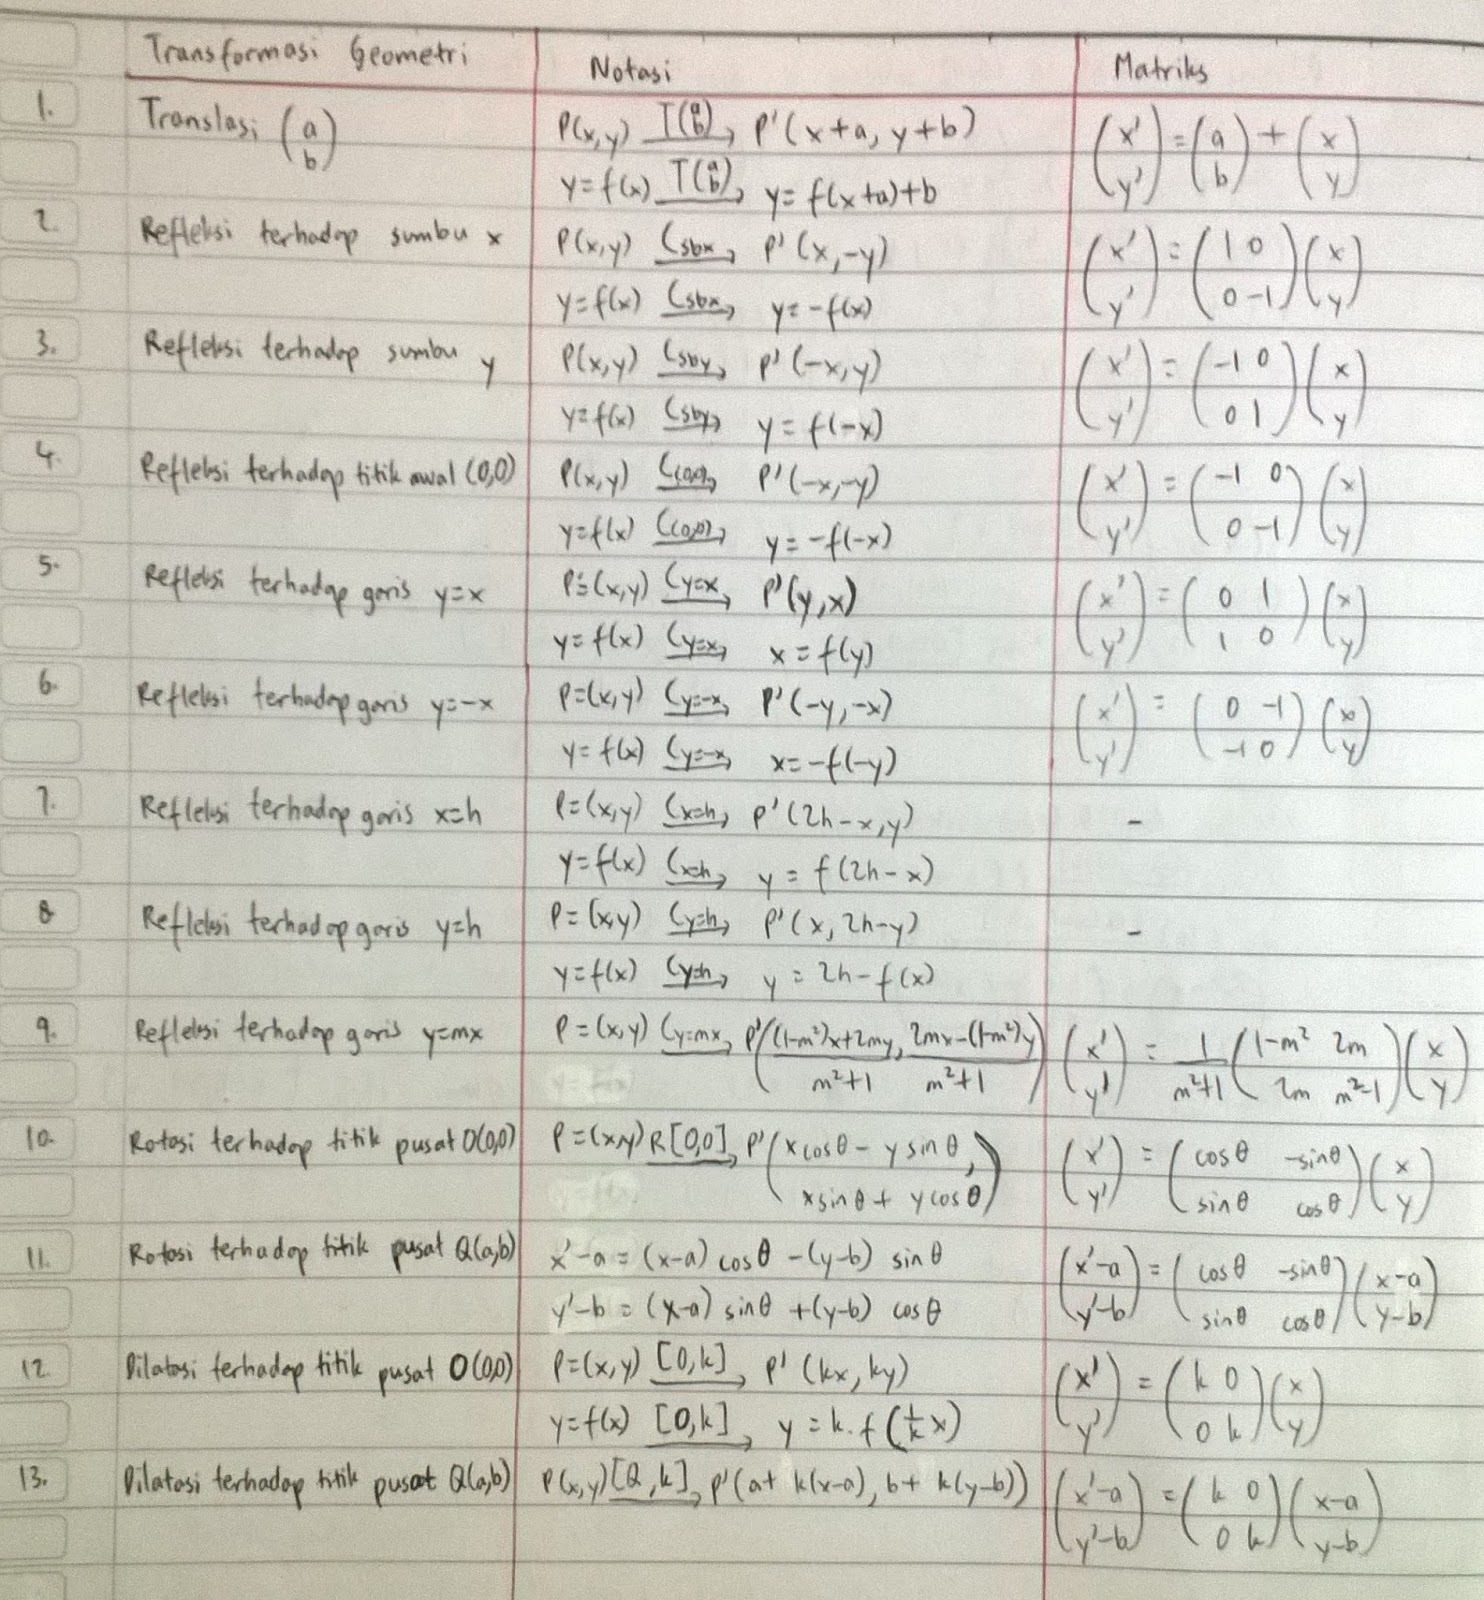 Transformasi Geometri Notasi Matriks
1. Translasi (a b) P(x,y) T(a b)→ P'(x+a, y+b) (x' y') = (a b) + (x y)
y=f(x) T(a b)→ y=f(x+a)+b
2. Refleksi terhadap sumbu x P(x,y) Csbx→ P'(x,-y) (x' y') = (1 0 0 -1)(x y)
y=f(x) Csbx→ y=-f(x)
3. Refleksi terhadap sumbu y P(x,y) Csby→ P'(-x,y) (x' y') = (-1 0 0 1)(x y)
y=f(x) Csby→ y=f(-x)
4. Refleksi terhadap titik awal (0,0) P(x,y) C(0,0)→ P'(-x,-y) (x' y') = (-1 0 0 -1)(x y)
y=f(x) C(0,0)→ y=-f(-x)
5. Refleksi terhadap garis y=x P=(x,y) Cy=x→ P'(y,x) (x' y') = (0 1 1 0)(x y)
y=f(x) Cy=x→ x=f(y)
6. Refleksi terhadap garis y=-x P=(x,y) Cy=-x→ P'(-y,-x) (x' y') = (0 -1 -1 0)(x y)
y=f(x) Cy=-x→ x=-f(-y)
7. Refleksi terhadap garis x=h P=(x,y) Cx=h→ P'(2h-x,y) -
y=f(x) Cx=h→ y=f(2h-x)
8 Refleksi terhadap garis y=h P=(x,y) Cy=h→ P'(x,2h-y) -
y=f(x) Cy=h→ y=2h-f(x)
9. Refleksi terhadap garis y=mx P=(x,y) Cy=mx→ P'((1-m²)x+2my/m²+1, 2mx-(1-m²)y/m²+1) (x' y') = 1/m²+1 (1-m² 2m 2m m²-1)(x y)
10. Rotasi terhadap titik pusat O(0,0) P=(x,y) R[0,0]→ P'(x cosθ - y sinθ,
x sinθ + y cosθ) (x' y') = (cosθ -sinθ sinθ cosθ)(x y)
11. Rotasi terhadap titik pusat Q(a,b) x'-a = (x-a) cosθ - (y-b) sinθ (x'-a y'-b) = (cosθ -sinθ sinθ cosθ)(x-a y-b)
y'-b = (x-a) sinθ + (y-b) cosθ
12. Dilatasi terhadap titik pusat O(0,0) P=(x,y) [0,k]→ P'(kx,ky) (x' y') = (k 0 0 k)(x y)
y=f(x) [0,k]→ y=k.f(1/k x)
13. Dilatasi terhadap titik pusat Q(a,b) P(x,y) [Q,k]→ P'(a+k(x-a), b+k(y-b)) (x'-a y'-b) = (k 0 0 k)(x-a y-b)